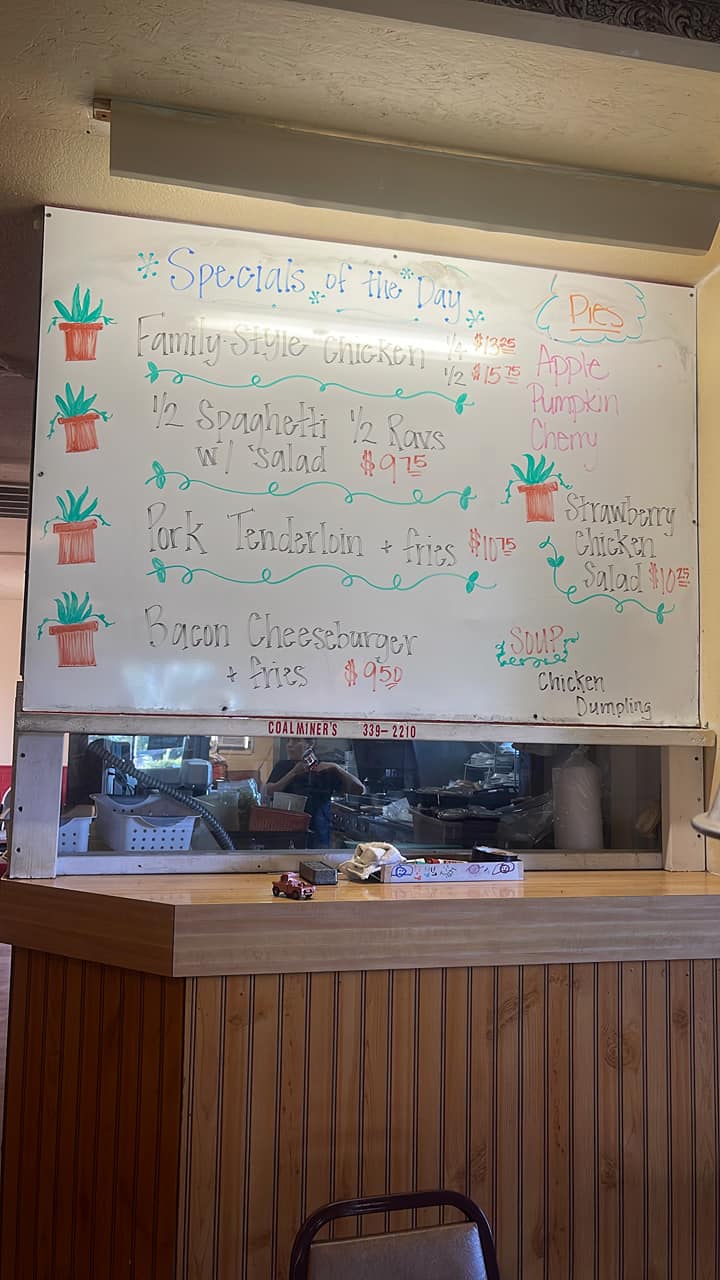 Specials of the Day
Family Style Chicken 1/4 $13 25
1/2 $15 75
1/2 Spaghetti 1/2 Ravs
w/ Salad $9 75
Pork Tenderloin + fries $10 75
Bacon Cheeseburger
+ fries $9 50
Pies
Apple
Pumpkin
Cherry
Strawberry
Chicken
Salad $10 25
SOUP
Chicken
Dumpling
COALMINER'S 339-2210